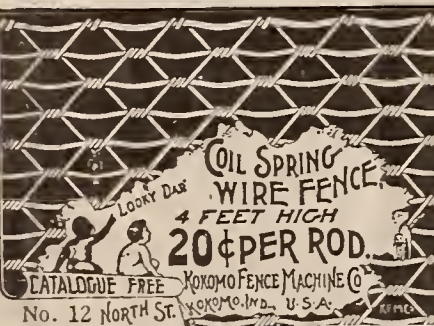 COIL SPRING
WIRE FENCE.
4 FEET HIGH
20¢ PER ROD.
"LOOKY DAR"
CATALOGUE FREE
KOKOMO FENCE MACHINE CO
No. 12 NORTH ST. KOKOMO, IND., U.S.A.
KFMC